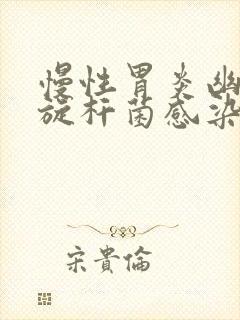 慢性胃炎幽
旋杆菌感染
宋貴倫